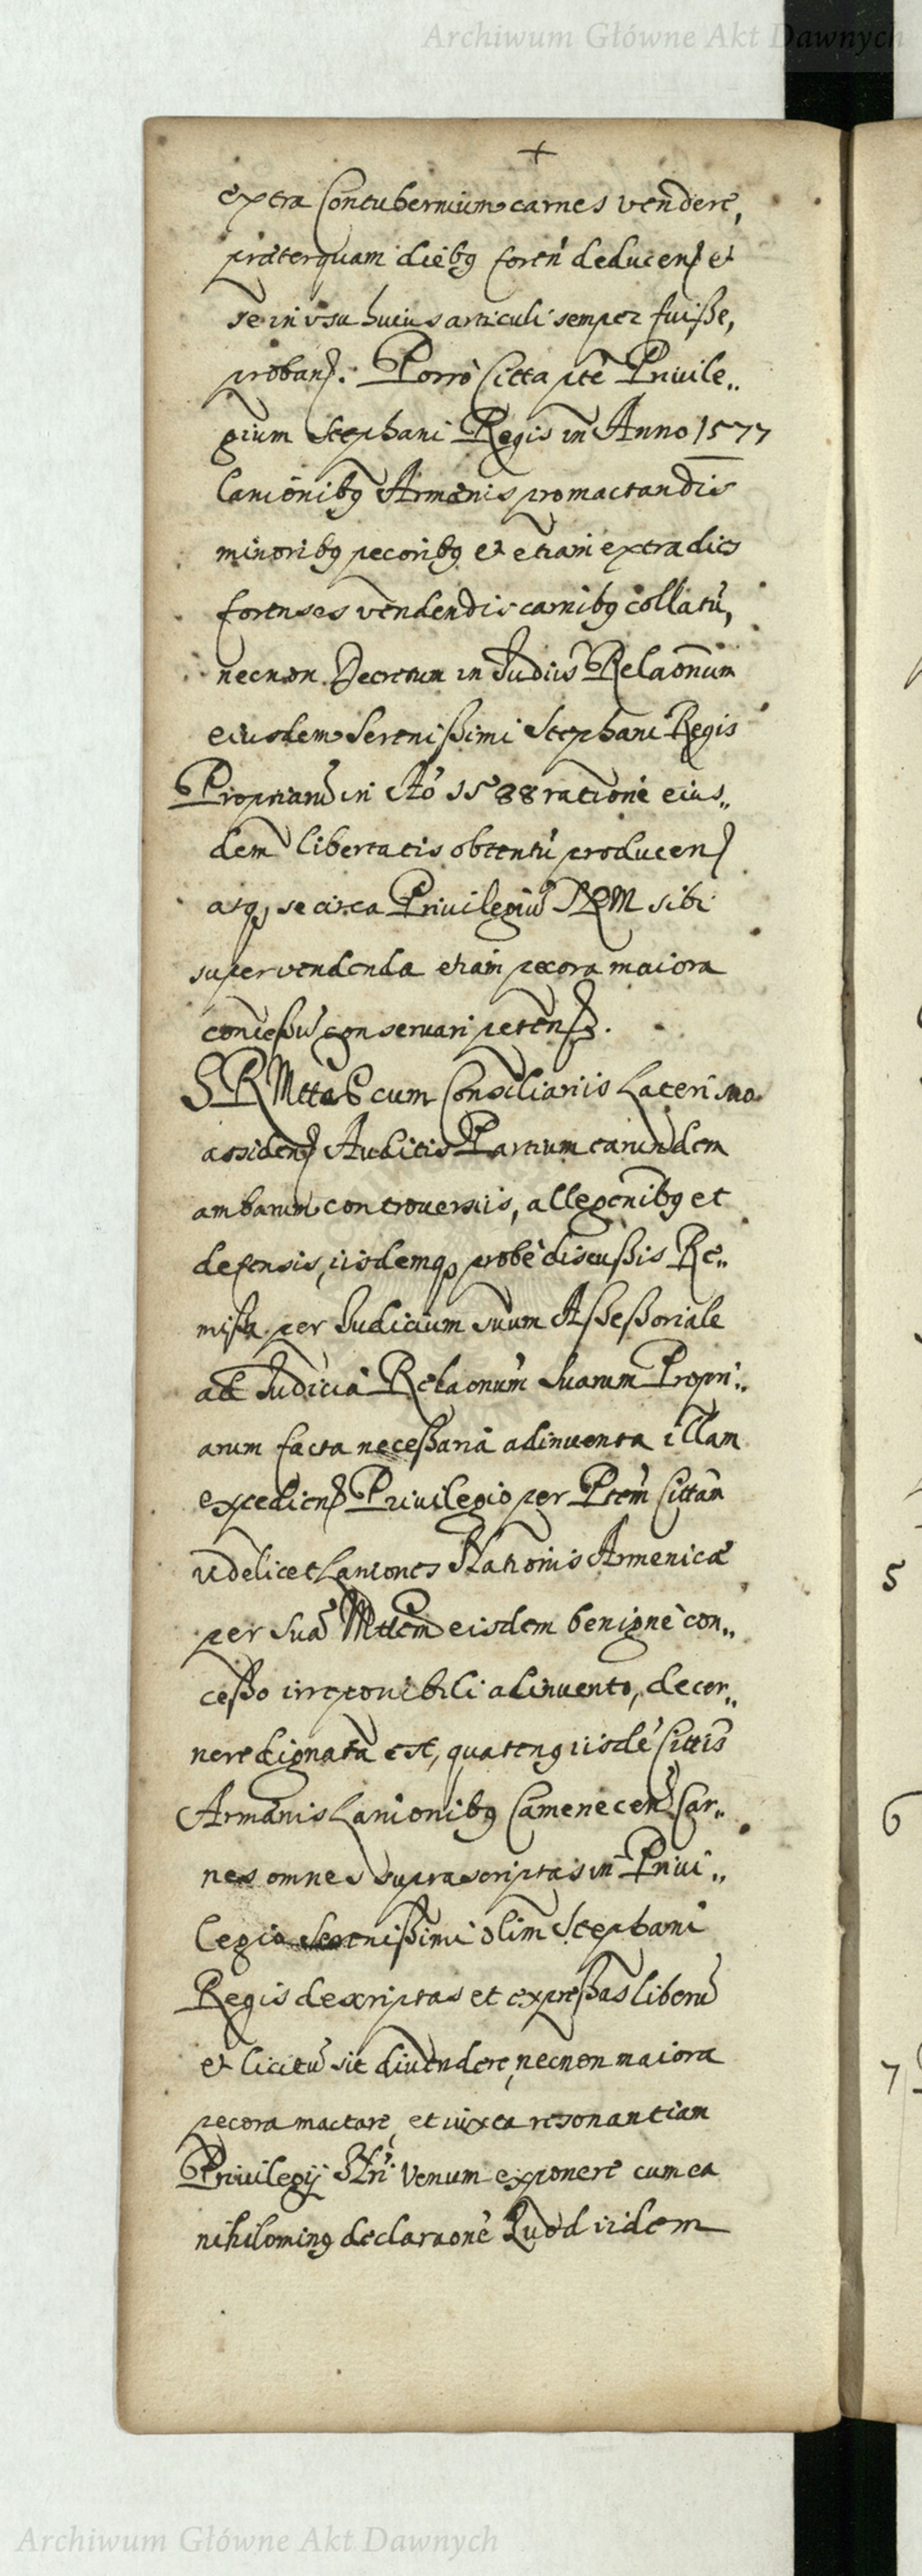 Archiwum Główne Akt Dawnych
+
extra Contubernium carnes vendere,
præterquam diebꝫ foreñ deducenꝭ et
se in vsu huius articuli semper fuiße,
probanꝭ. Porrò Citta ptẽ Priuile„
gium Stephani Regis in Anno 1577
Lanionibꝫ Armenis pro mactandis
minoribꝫ pecoribꝫ et etiam extra dies
forenses vendendis carnibꝫ collatũ,
necnon Decretum in Judiis Relaõnum
eiusdem Serenißimi Stephani Regis
Propriarũ in Aõ 1588 ratione eius„
dem libertatis obtentũ producenꝭ
atqꝫ se circa Priuilegiũ SRM sibi
super vendenda etiam pecora maiora
conceßũ conseruari petenꝭ.
SRMttas cum Consiliariis Lateri suo
assidenꝭ Auditis Partium earundem
ambarum controuersiis, allegõnibꝫ et
defensis, iisdemqꝫ probè discußis Re„
mißa per Judicium suum Aßeßoriale
ad Judicia Relaonũm Suarum Propri„
arum facta neceßaria adinuenta illam
expedienꝭ Priuilegio per Ptem Cittam
videlicet Laniones Nationis Armenicæ
per Suã Mttem eisdem benignè con„
ceßo irreponibili adinuento, decer„
nere dignata est, quatenꝫ iisdẽ Cittis
Armenis Lanionibꝫ Camenecenꝭ Car„
nes omnes suprascriptas in Priui„
legio Serenißimi olim Stephani
Regis descriptas et expreßas liberũ
et licitũ sit diuendere, necnon maiora
pecora mactare, et iuxta resonantiam
Priuilegij Nri Venum exponere cum ea
nihilominꝫ declaraonè Quod iidem
5
6
7
Archiwum Główne Akt Dawnych